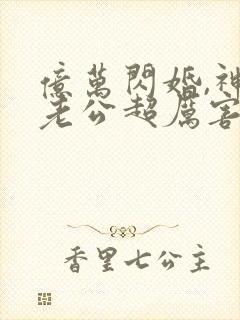 億萬閃婚,神
老公超厲害
香里七公主